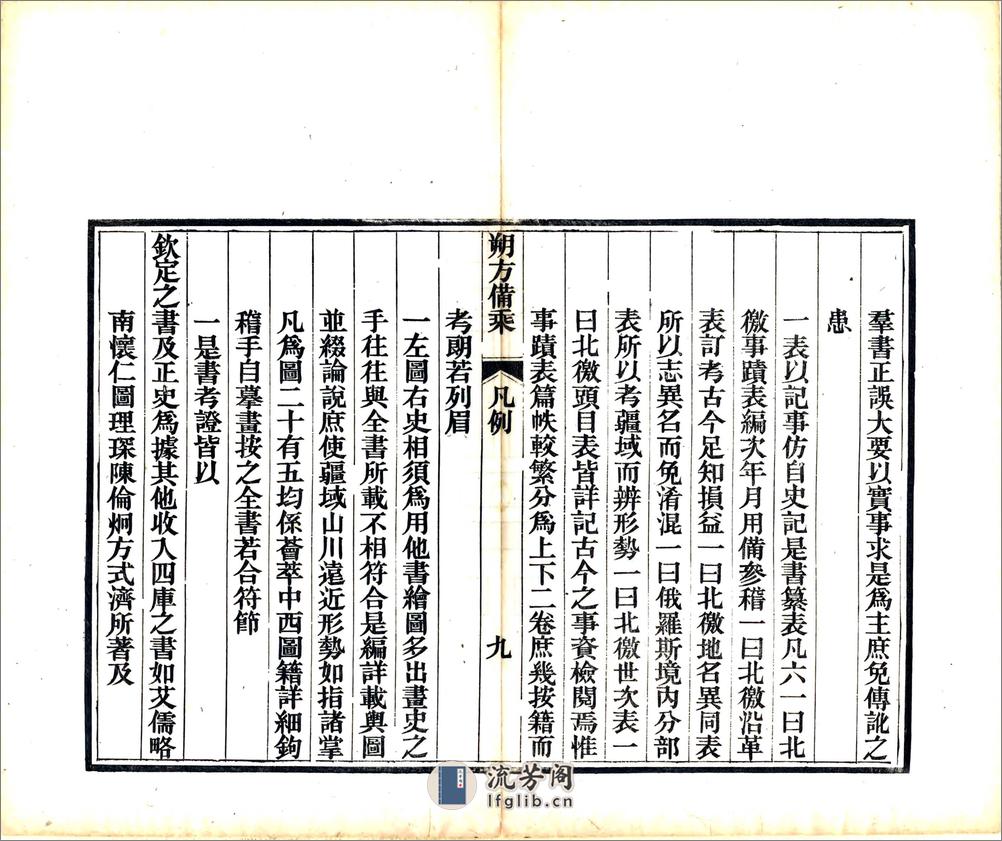 羣書正誤大要以實事求是爲主庶免傳訛之
患
一表以記事仿自史記是書纂表凡六一曰北
徼事蹟表編次年月用備參稽一曰北徼沿革
表訂考古今足知損益一曰北徼地名異同表
所以志異名而免淆混一曰俄羅斯境内分部
表所以考疆域而辨形勢一曰北徼世次表一
曰北徼頭目表皆詳記古今之事資檢閱焉惟
事蹟表篇帙較繁分爲上下二卷庶幾按籍而
朔方備乘 凡例 九
考朗若列眉
一左圖右史相須爲用他書繪圖多出畫史之
手往往與全書所載不相符合是編詳載輿圖
並綴論說庶使疆域山川遠近形勢如指諸掌
凡爲圖二十有五均係薈萃中西圖籍詳細鉤
稽手自摹畫按之全書若合符節
一是書考證皆以
欽定之書及正史爲據其他收入四庫之書如艾儒略
南懷仁圖理琛陳倫炯方式濟所著及
流芳阁
lfglib.cn